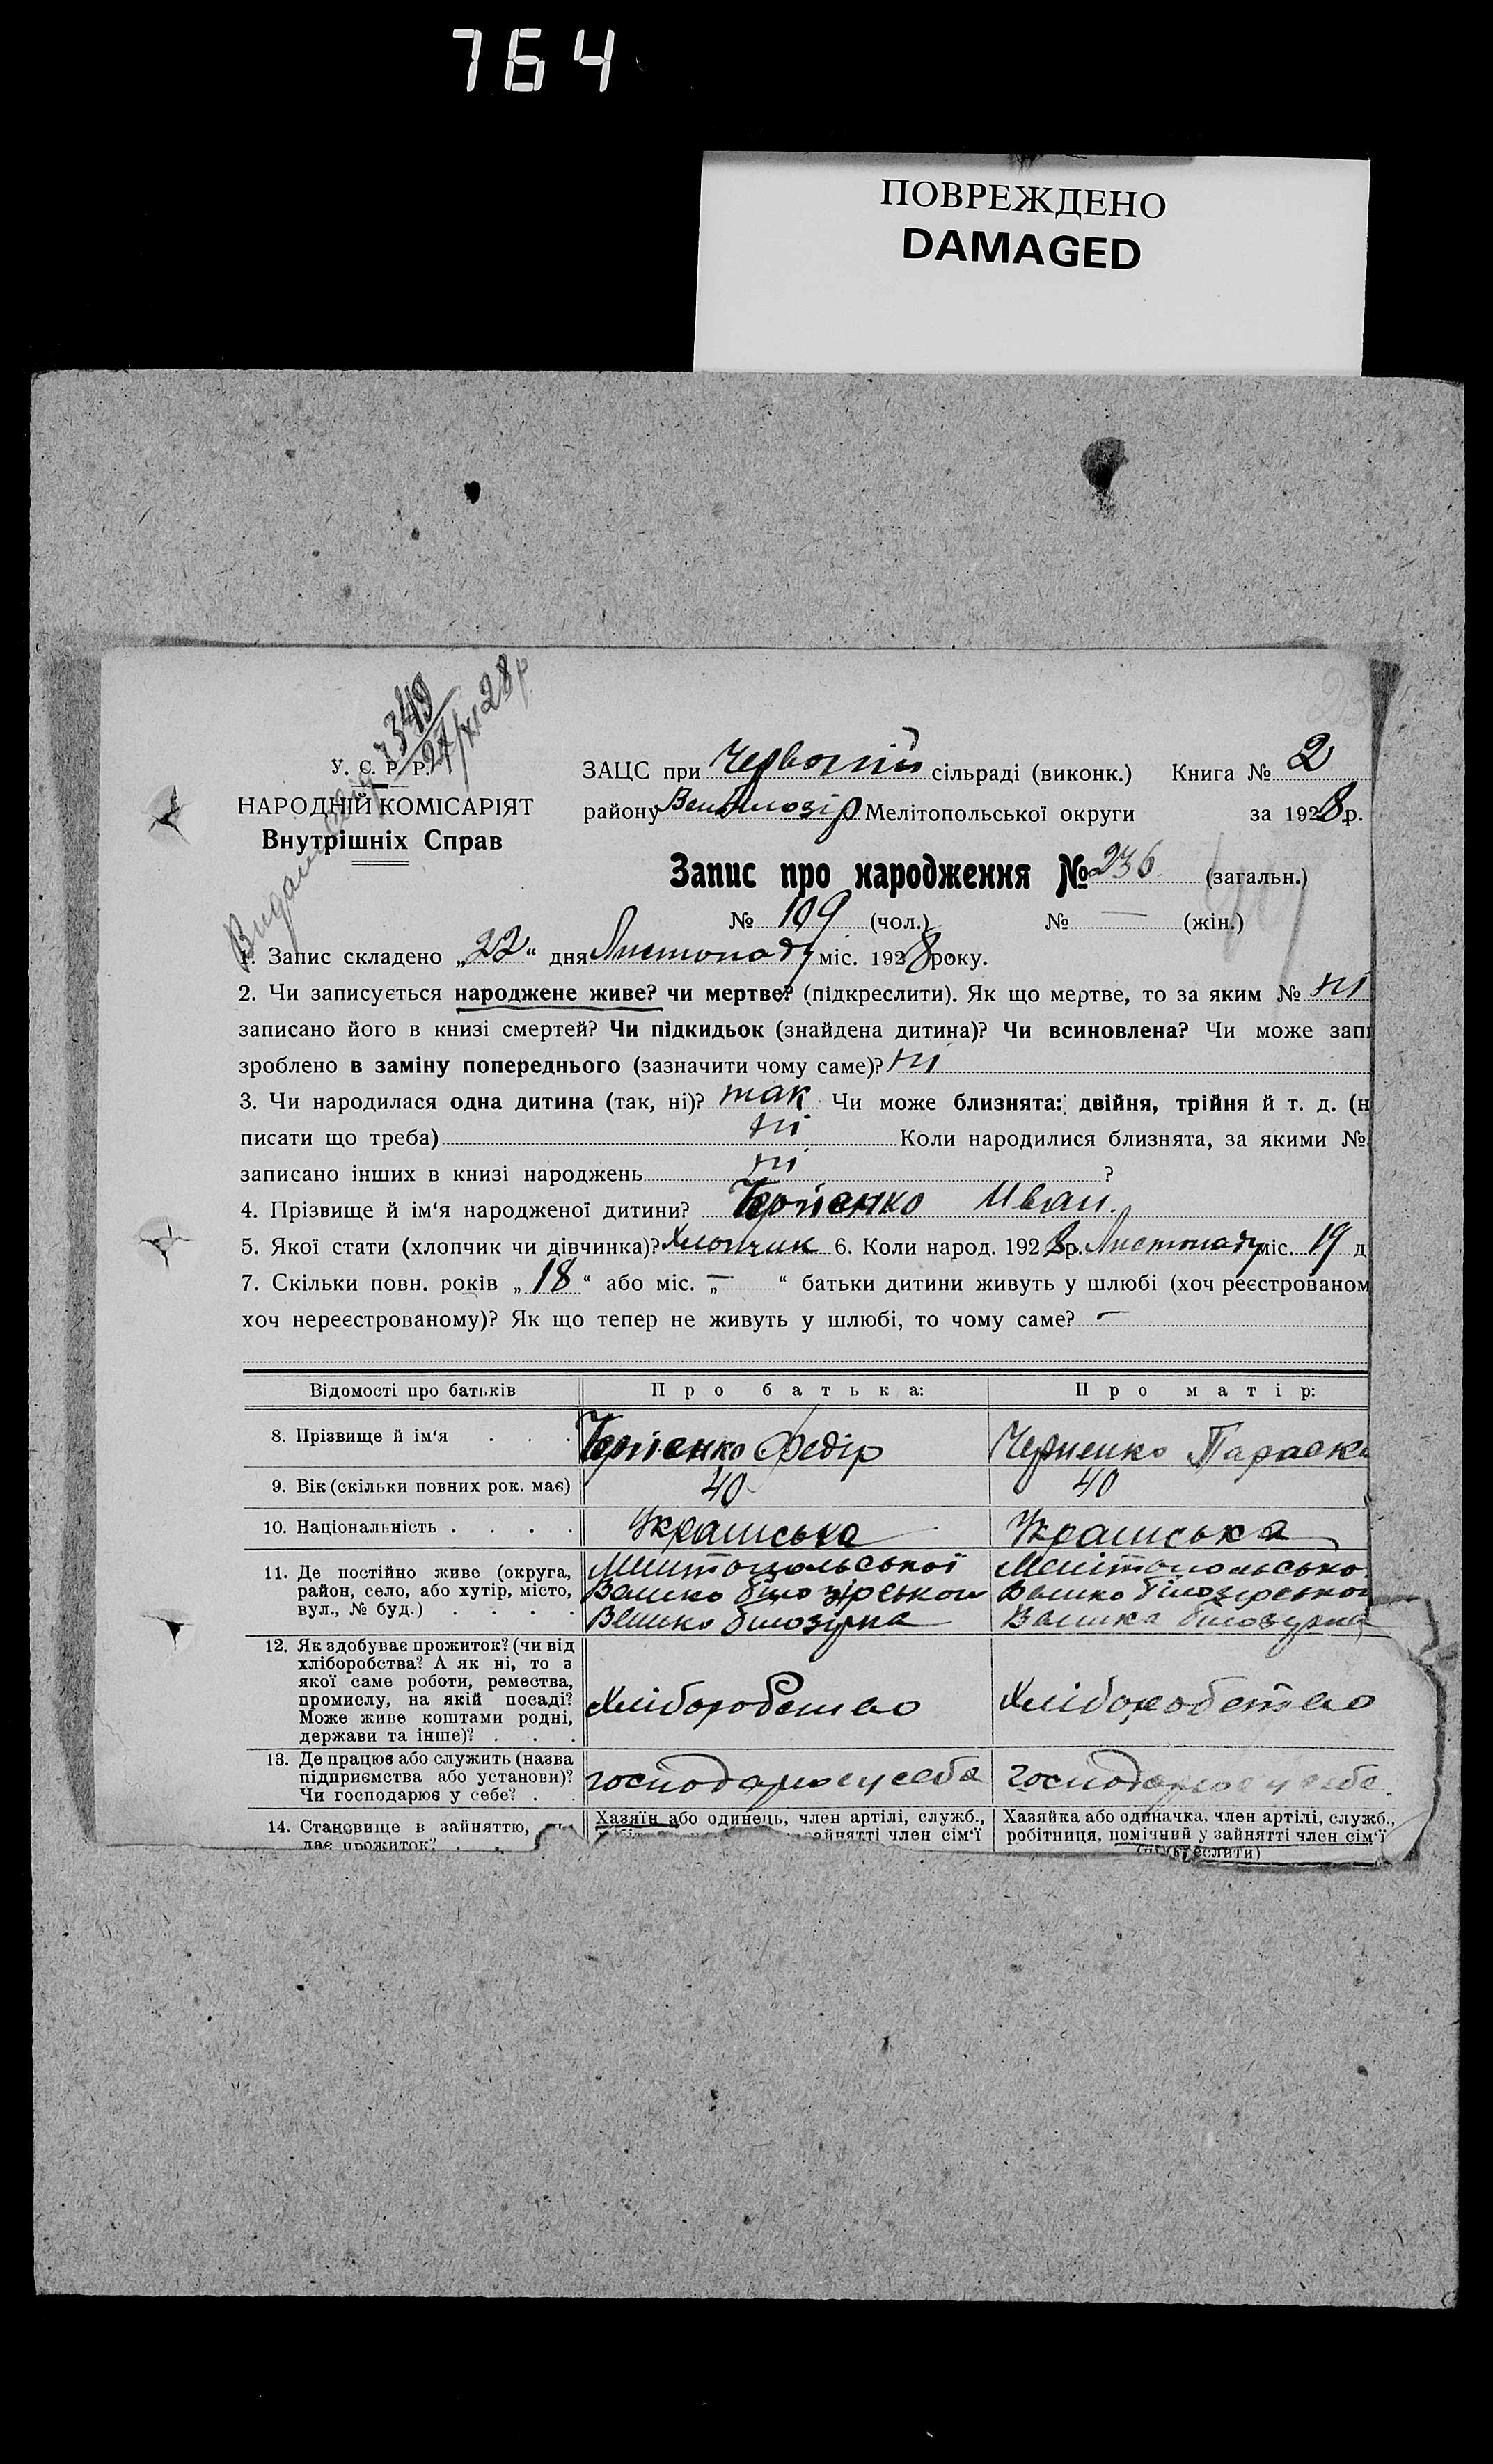 764
ПОВРЕЖДЕНО
DAMAGED
349
27/XI 28 р.
У. С. Р. Р.
НАРОДНІЙ КОМІСАРІЯТ
Внутрішніх Справ
ЗАЦС при Червоній сільраді (виконк.) Книга № 2
району Велбілозір Мелітопольської округи за 1928 р.
Запис про народження № 236 (загальн.)
№ 109 (чол.) № — (жін.)
1. Запис складено „22“ дня Листопаду міс. 1928 року.
2. Чи записується народжене живе? чи мертве? (підкреслити). Як що мертве, то за яким № ні
записано його в книзі смертей? Чи підкидьок (знайдена дитина)? Чи всиновлена? Чи може запи
зроблено в заміну попереднього (зазначити чому саме)? ні
3. Чи народилася одна дитина (так, ні)? так Чи може близнята: двійня, трійня й т. д. (н
писати що треба) ні Коли народилися близнята, за якими №
записано інших в книзі народжень ні ?
4. Прізвище й ім‘я народженої дитини? Иван.
5. Якої стати (хлопчик чи дівчинка)? Хлопчик 6. Коли народ. 1928 р. Листопаду міс. 19 д
7. Скільки повн. років „18“ або міс. „—“ батьки дитини живуть у шлюбі (хоч реєстрованом
хоч нереєстрованому)? Як що тепер не живуть у шлюбі, то чому саме? —
Відомості про батьків Про батька: Про матір:
8. Прізвище й ім‘я . . . Федір Черненко Параска
9. Вік (скільки повних рок. має) 40 40
10. Національність . . . . Українська Українська
11. Де постійно живе (округа, Мелітопольської Мелітопольсько
район, село, або хутір, місто, Велико білозірськои Велико білозірськои
вул., № буд.) . . . . Велико білозірка Велика білозірка
12. Як здобуває прожиток? (чи від
хліборобства? А як ні, то з
якої саме роботи, ремества,
промислу, на якій посаді? Хліборобство Хліборобство
Може живе коштами родні,
держави та інше)? . . .
13. Де працює або служить (назва
підприємства або установи)? господарює у себе господарює у себе
Чи господарює у себе? . .
14. Становище в зайняттю, Хазяїн або одинець, член артілі, служб., Хазяйка або одиначка, член артілі, служб.,
дає прожиток? . . зайнятті член сім‘ї робітниця, помічний у зайнятті член сім‘ї